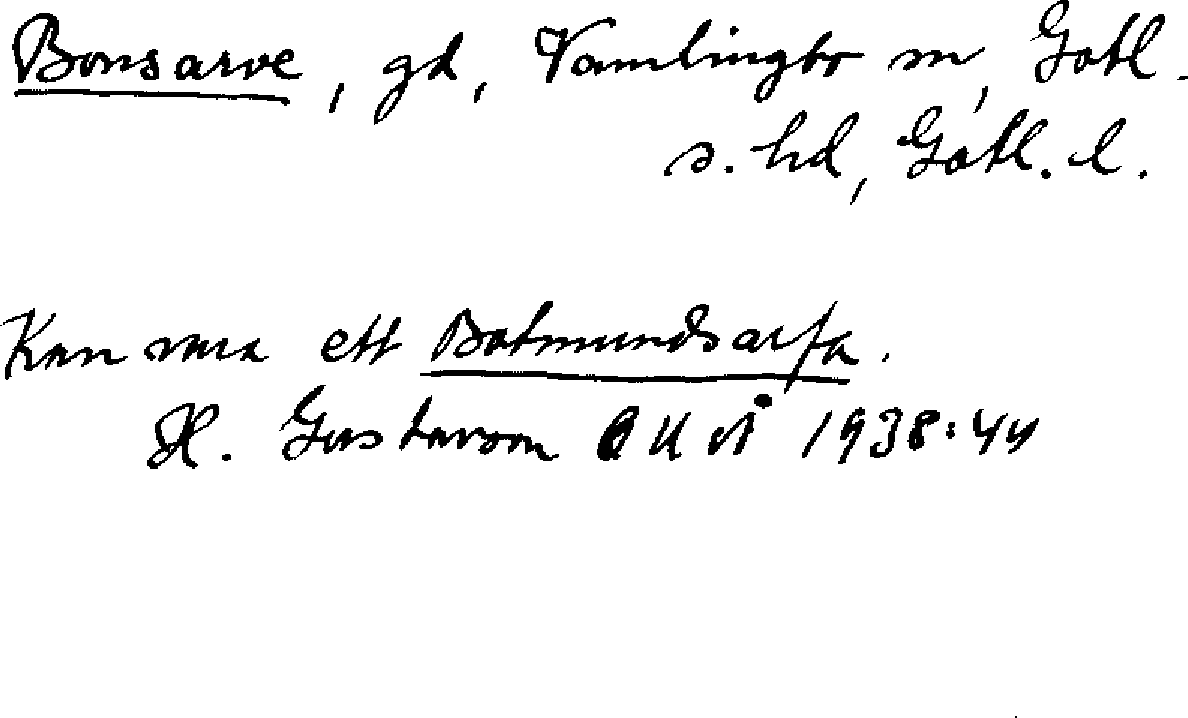 Bonsarve, gd, Vamlingbo sn, Gotl.
s. hd, Gotl. l.
Kan vara ett Botmundsarfa.
H. Gustavson GUÅ 1938:44